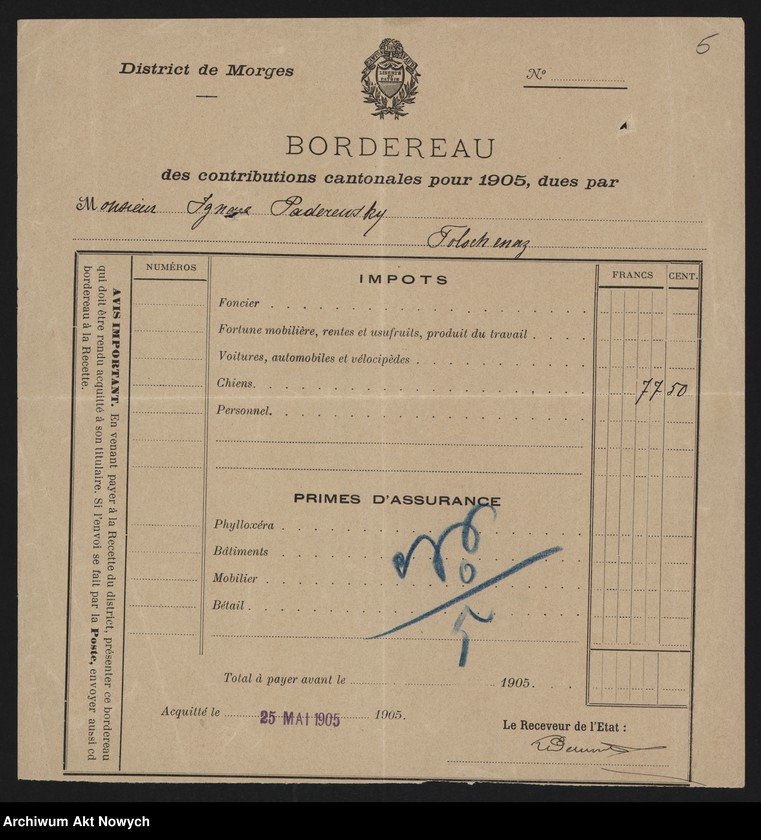 5
District de Morges
LIBERTÉ ET PATRIE
Nº
BORDEREAU
des contributions cantonales pour 1905, dues par
Monsieur Ignace Paderewsky
Tolochenaz
NUMÉROS
IMPOTS
FRANCS CENT.
Foncier
Fortune mobilière, rentes et usufruits, produit du travail
Voitures, automobiles et vélocipèdes
Chiens. 77 50
Personnel.
PRIMES D'ASSURANCE
Phylloxéra
Bâtiments
Mobilier
Bétail
Total à payer avant le 1905.
Acquitté le 25 MAI 1905 1905.
Le Receveur de l'Etat :
AVIS IMPORTANT. En venant payer à la Recette du district, présenter ce bordereau
qui doit être rendu acquitté à son titulaire. Si l'envoi se fait par la Poste, envoyer aussi cd
bordereau à la Recette.
Archiwum Akt Nowych